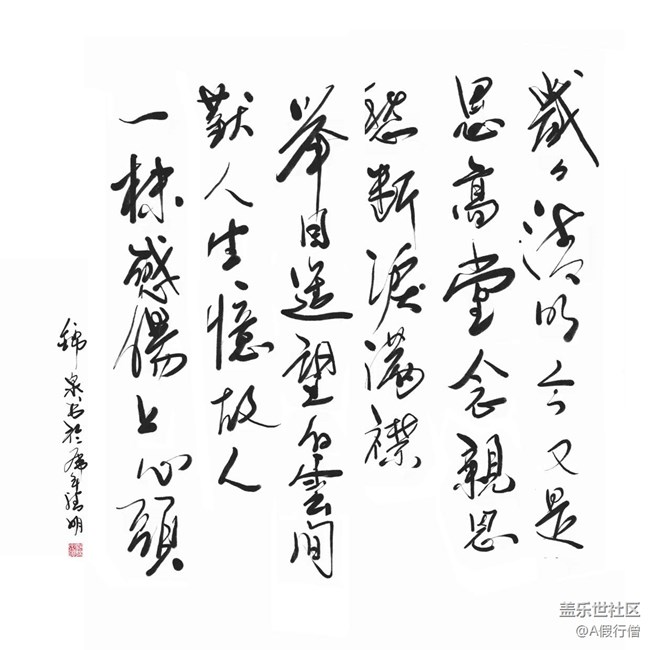 歲々清明今又是
思高堂念親恩
愁斷淚滿襟
举目遥望白雲间
歎人生憶故人
一抹感傷上心頭
錦泉书於虎年清明
盖乐世社区
@A假行僧